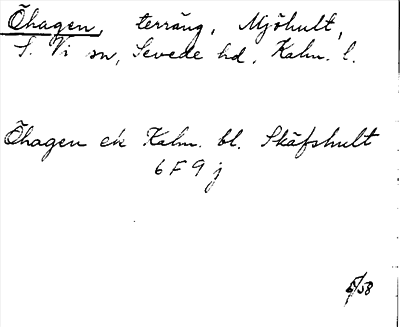 Öhagen, terräng, Mjöhult,
S. Vi sn, Sevede hd, Kalm. l.
Öhagen ek Kalm. bl. Skäfshult
6 F 9 j